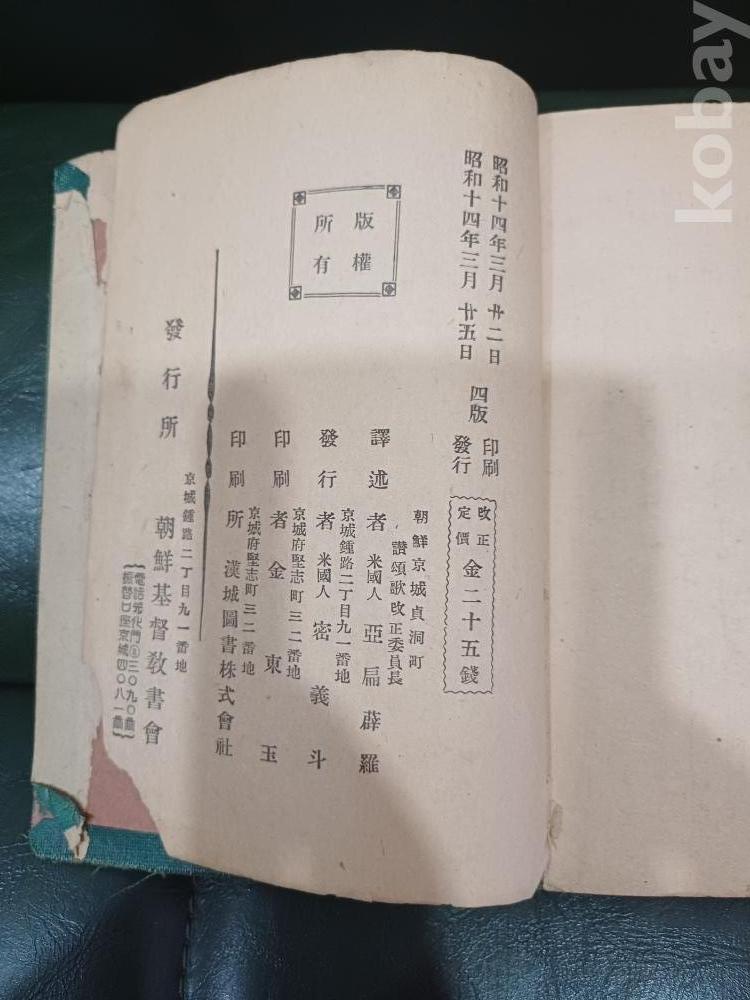 昭和十四年三月廿二日 印刷
昭和十四年三月廿五日 四版 發行
改正定價 金二十五錢
版權所有
朝鮮京城貞洞町
讚頌歌改正委員長
譯述者 米國人 亞扁薛羅
京城鍾路二丁目九一番地
發行者 米國人 密義斗
京城府堅志町三二番地
印刷者 金東玉
京城府堅志町三二番地
印刷所 漢城圖書株式會社
京城鍾路二丁目九一番地
發行所 朝鮮基督敎書會
電話光化門③三〇九〇番
振替口座京城四〇八一番
kobay